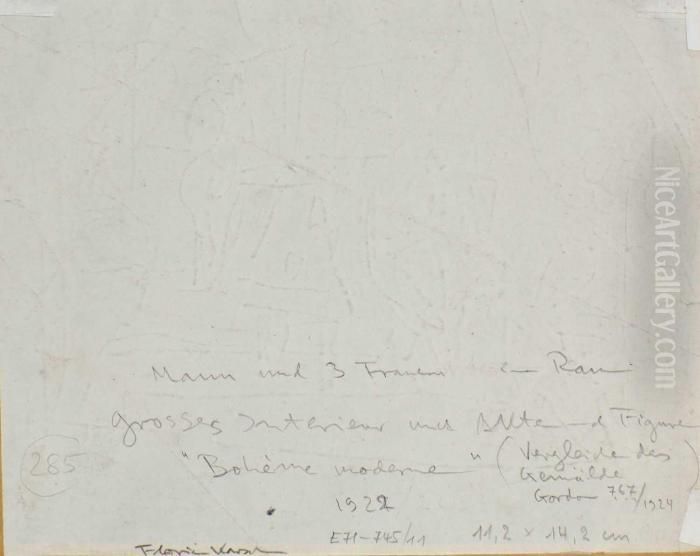 Mann und 3 Frauen im Raum
grosses Interieur mit Akten und Figuren
285
"Bohème moderne" (Vergleiche das
Gemälde
Gordon 767/1924
1922
E71-745/11 11,2 x 14,2 cm
Florian Karsch
NiceArtGallery.com